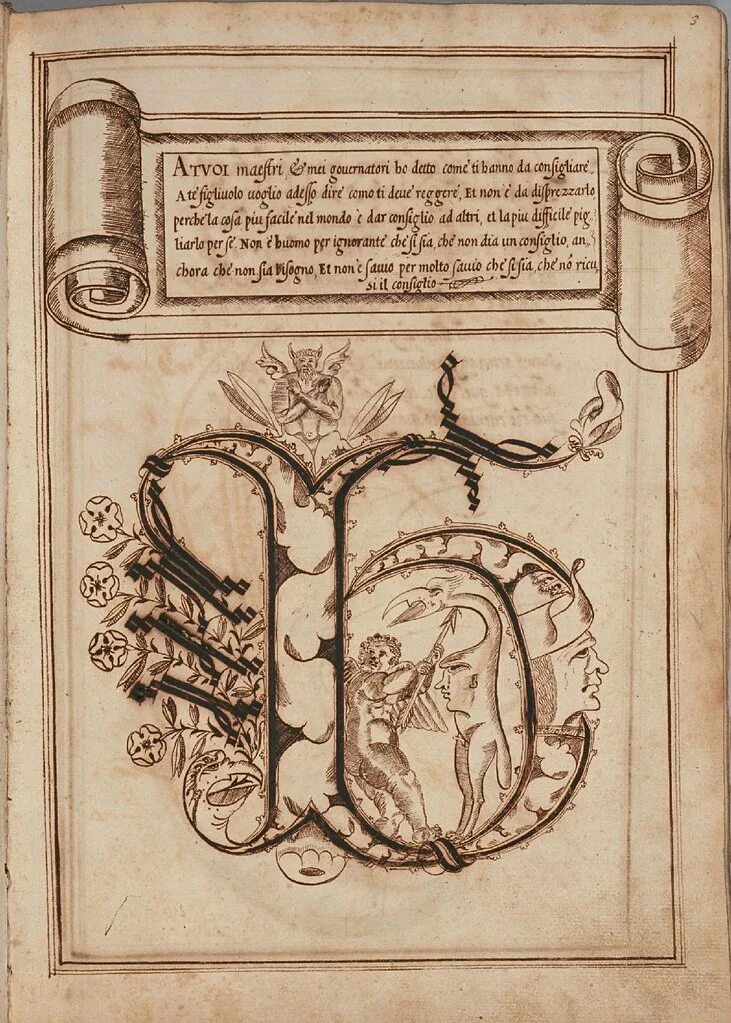 3
ATVOI maestri & mei gouernatori ho detto come ti hanno da consigliare.
A te figliuolo uoglio adesso dire como ti deue reggere, Et non è da disprezzarlo
perche la cosa piu facile nel mondo è dar consiglio ad altri, et la piu difficile pig-
liarlo per se. Non è huomo per ignorante che si sia, che non dia un consiglio, an,
chora che non sia bisogno, Et non è sauio per molto sauio che si sia, che nõ ricu,
si il consiglio